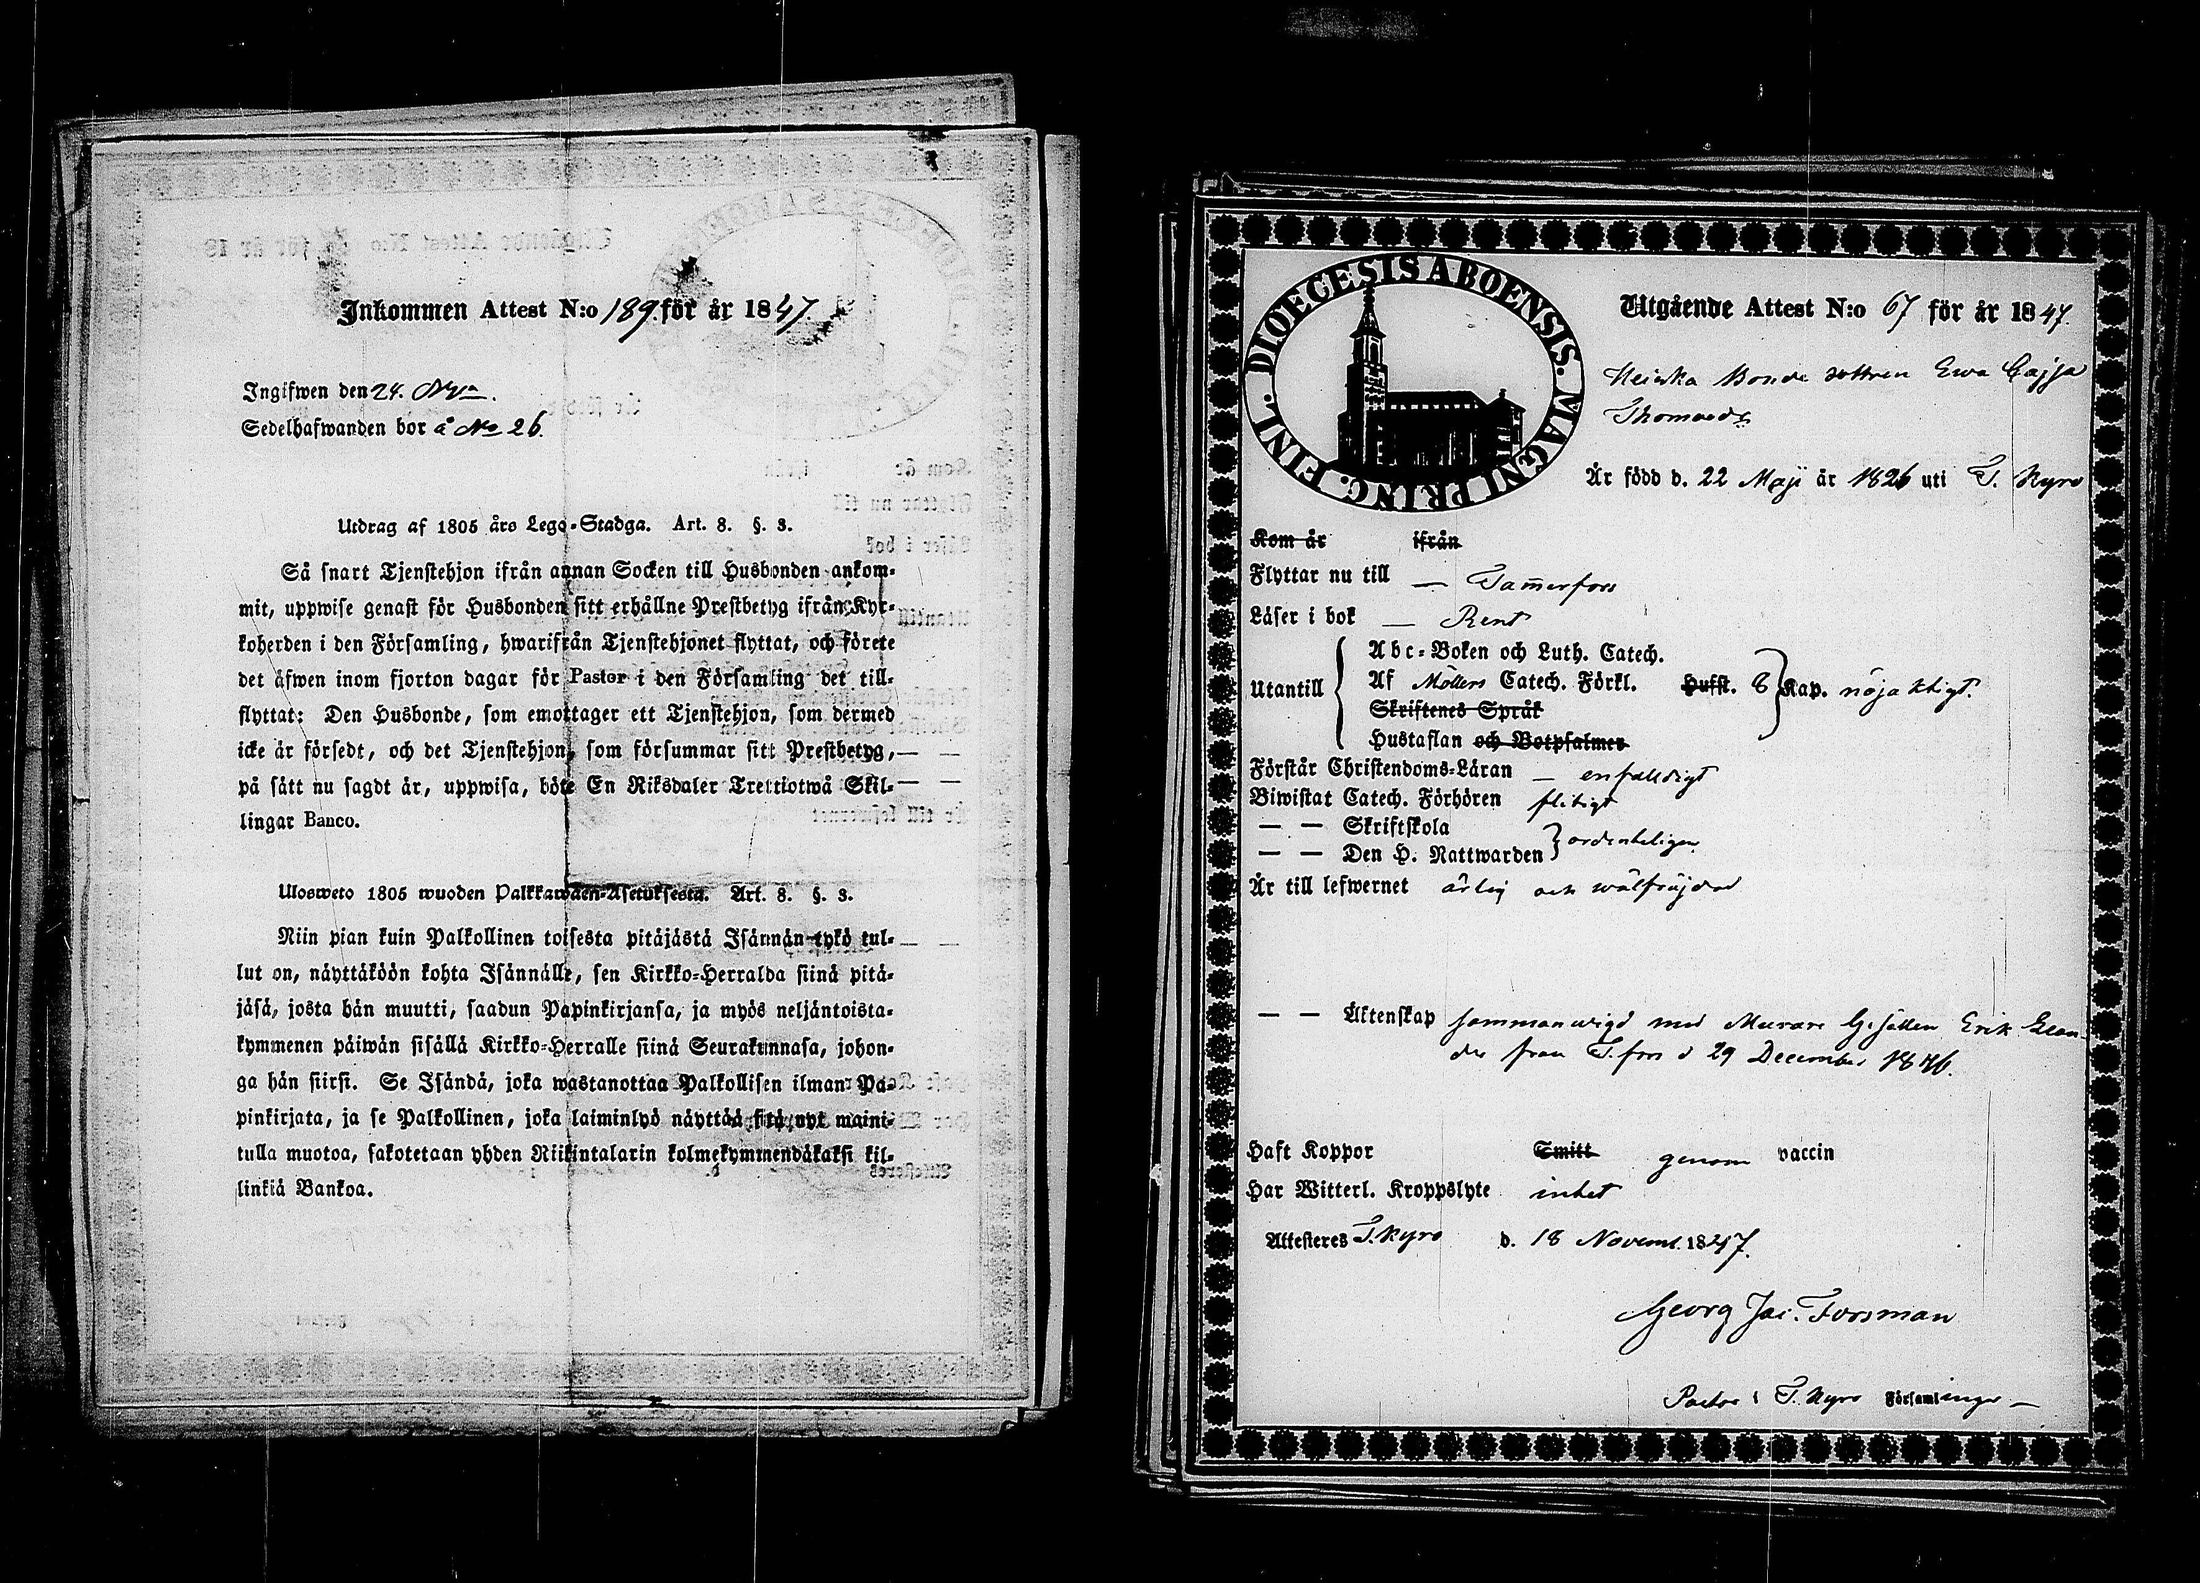 Inkommen Attest N:o 189. för år 1847.
Ingifwen den 24.
Sedelhafwanden bor å No 26.
Utdrag af 1805 års Lego-Stadga. Art. 8. §. 3.
Så snart Tjenstehjon ifrån annan Socken till Husbonden ankom-
mit, uppwise genast för Husbonden sitt erhållne Prestbetyg ifrån Kyr-
koherden i den Församling, hwarifrån Tjenstehjonet flyttat, och förete
det äfwen inom fjorton dagar för Pastor i den Församling det till-
flyttat: Den Husbonde, som emottager ett Tjenstehjon, som dermed
icke är försedt, och det Tjenstehjon, som försummar sitt Prestbetyg,
på sätt nu sagdt är, uppwisa, böte En Riksdaler Trettiotwå Skil-
lingar Banco.
Ulosweto 1805 wuoden Palkkawäen-Asetuksesta. Art. 8. §. 3.
Niin pian kuin Palkollinen toisesta pitäjästä Isännän tykö tul-
lut on, näyttäköön kohta Isännälle, sen Kirkko-Herralda siinä pitä-
jäsä, josta hän muutti, saadun Papinkirjansa, ja myös neljäntoista-
kymmenen päiwän sisällä Kirkko-Herralle siinä Seurakunnasa, johon-
ga hän siirsi. Se Isändä, joka wastanottaa Palkollisen ilman Pa-
pinkirjata, ja se Palkollinen, joka laiminlyö näyttää sitä nyt maini-
tulla muotoa, sakotetaan yhden Riikintalarin kolmekymmendäkaksi kil-
linkiä Bankoa.
DIOECESIS ABOENSIS. MAGNI PRINC. FINL.
Utgående Attest N:o 67 för år 1847.
Bonde dottren Ewa Cajsa
Thomasdr
Är född d. 22 Maji år 1826 uti T. Kyro
Kom år ifrån
Flyttar nu till — Tam̅erfors
Läser i bok — Rent
Utantill
Abc-Boken och Luth. Catech.
Af Möllers Catech. Förkl. Husst. 8 Kap. nöjaktigt.
Skriftenes Språk
Hustaflan och Botpsalmer
Förstår Christendoms-Läran — enfalldigt
Biwistat Catech. Förhören flitigt
— — Skriftskola
— — Den H. Nattwarden ordenteligen
Är till lefwernet ärlig och wälfräjdad
— — Äktenskap sammanwigd med Murare Gesällen Erik Elan-
der från T.fors d 29 December 1846.
Haft Koppor Smitt genom vaccin
Har Witterl. Kroppslyte intet
Attesteres T. Kyro d. 18 Novemb. 1847.
Georg Jac. Forsman
Pastor i T. Kyro Församlings —